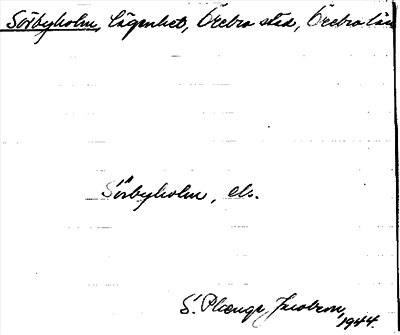 Sörbyholm, lägenhet, Örebro stad, Örebro län
Sörbyholm, els.
S. Jacobson,
1944.